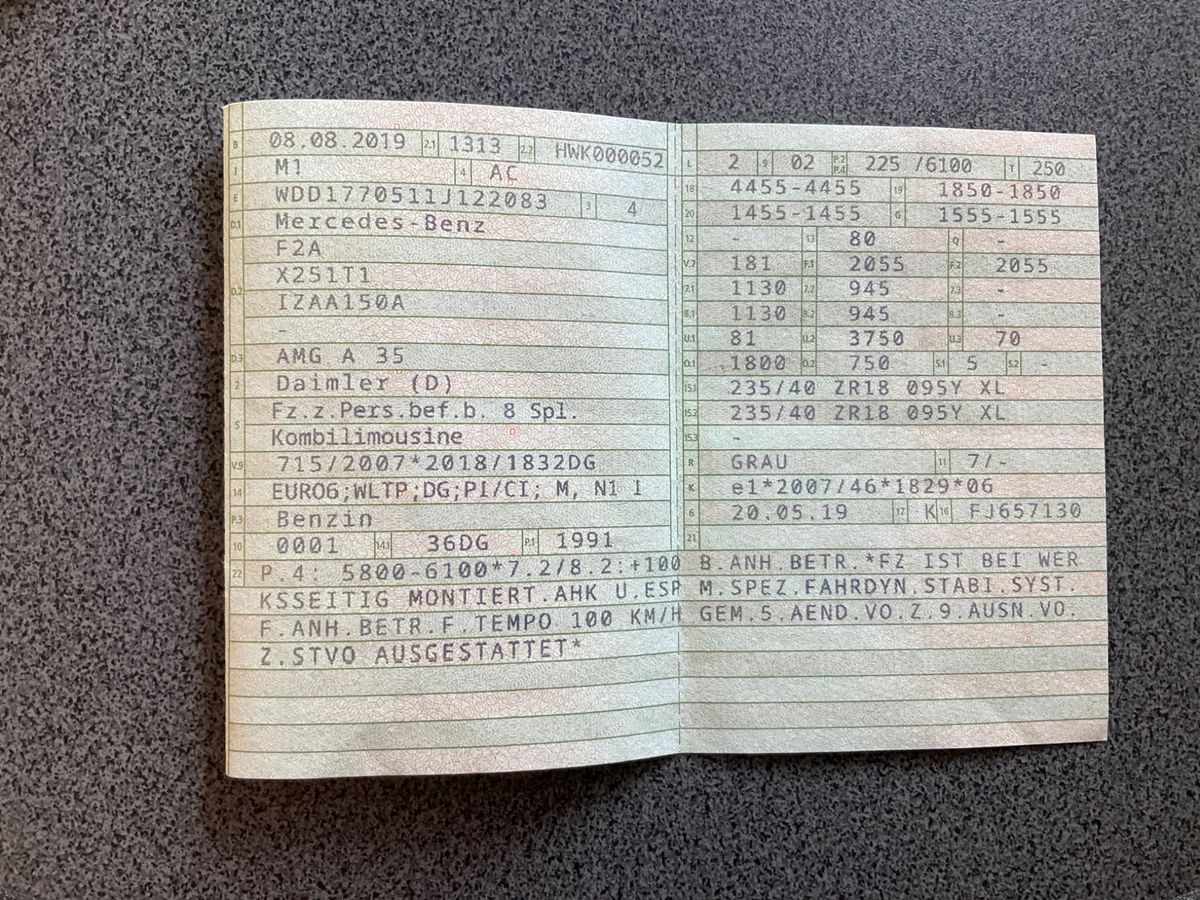 B 08.08.2019 2.1 1313 2.2 HWK000052
J M1 4 AC
E WDD1770511J122083 3 4
D.1 Mercedes-Benz
F2A
D.2 X251T1
IZAA150A
-
D.3 AMG A 35
2 Daimler (D)
5 Fz.z.Pers.bef.b. 8 Spl.
Kombilimousine
V.9 715/2007*2018/1832DG
14 EURO6;WLTP;DG;PI/CI; M, N1 I
P.3 Benzin
10 0001 14.1 36DG P.1 1991
L 2 9 02 P.2 P.4 225 /6100 T 250
18 4455-4455 19 1850-1850
20 1455-1455 G 1555-1555
12 - 13 80 Q -
V.7 181 F.1 2055 F.2 2055
7.1 1130 7.2 945 7.3 -
8.1 1130 8.2 945 8.3 -
U.1 81 U.2 3750 U.3 70
O.1 1800 O.2 750 S.1 5 S.2 -
15.1 235/40 ZR18 095Y XL
15.2 235/40 ZR18 095Y XL
15.3 -
R GRAU 11 7/-
K e1*2007/46*1829*06
6 20.05.19 17 K 16 FJ657130
21
22 P.4: 5800-6100*7.2/8.2:+100 B.ANH.BETR.*FZ IST BEI WER
KSSEITIG MONTIERT.AHK U.ESP M.SPEZ.FAHRDYN.STABI.SYST.
F.ANH.BETR.F.TEMPO 100 KM/H GEM.5.AEND.VO.Z.9.AUSN.VO.
Z.STVO AUSGESTATTET*